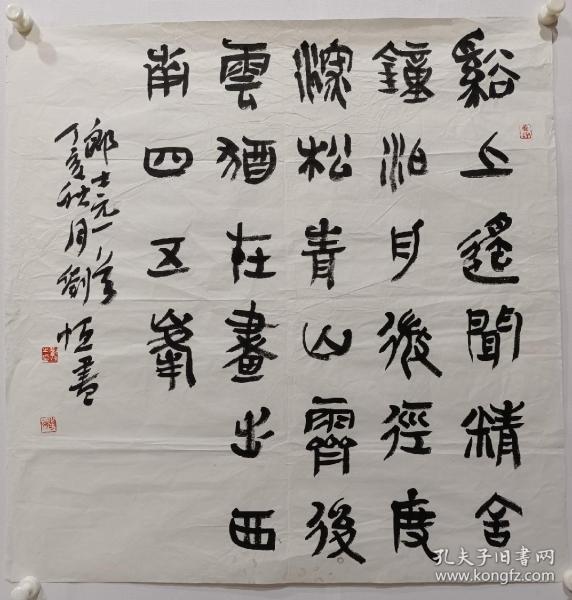 谿上遙聞精舍
鐘泊舟微徑度
深松青山霽後
雲猶在畫出西
南四五峯
郎士元一首
丁亥秋月劉恒書
孔夫子旧书网
www.kongfz.com